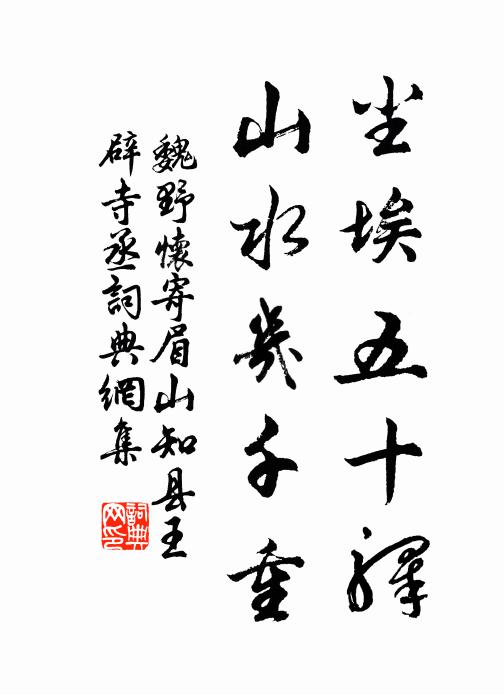 尘埃五十驛
山水幾千重
魏野懷寄眉山知县王
辟寺丞詞典網集
詞典
网印